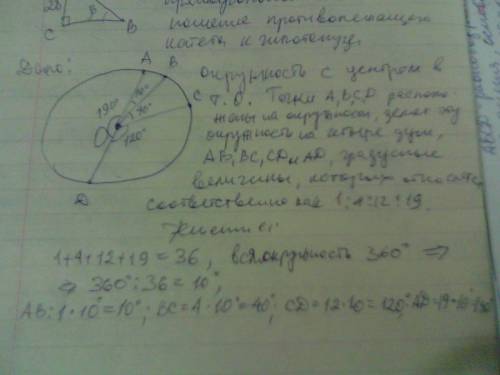 ношение противолежащего
катета к гипотенузе.
C B
Дано:
окружность с центром в
т. O. Точки A, B, C, D располо-
жены на окружности, делят эту
окружность на четыре дуги,
AB, BC, CD и AD, градусные
величины, которых относятся
соответственно как 1:4:12:19.
A B C D O
190° 120°
Решение:
1+4+12+19=36, вся окружность 360° ⇒
⇒ 360°:36=10°,
AB: 1·10°=10°; BC=4·10°=40°; CD=12·10=120°; AD=19·10°=190°